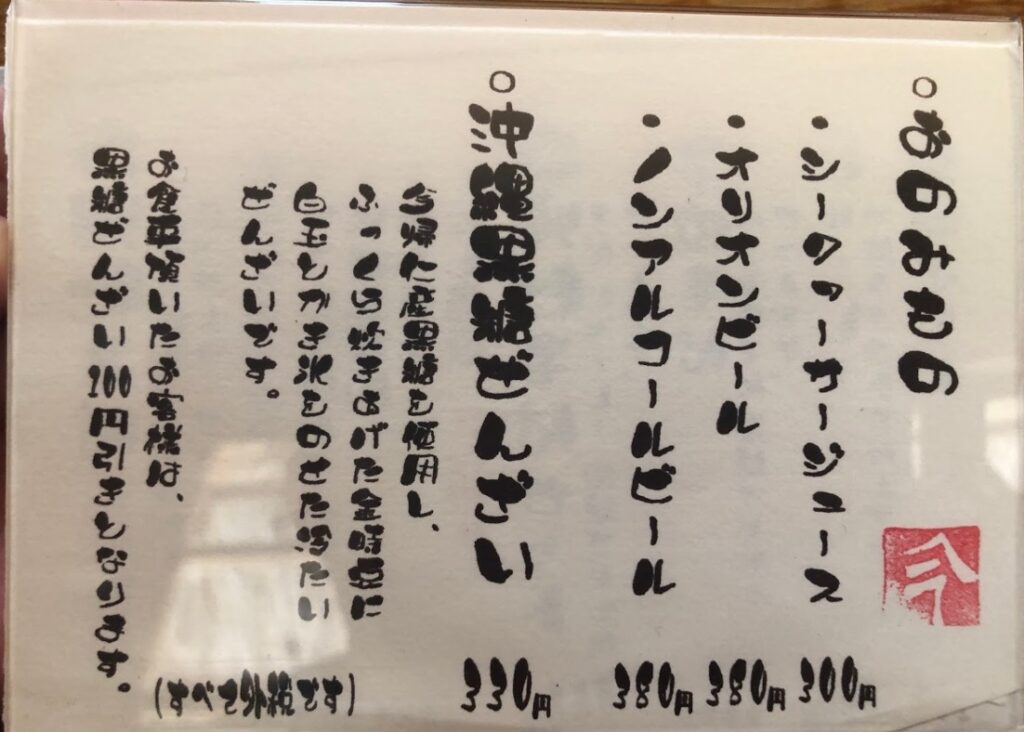 ○おのみもの
・シークヮーサージュース 300円
・オリオンビール 380円
・ノンアルコールビール 380円
○沖縄黒糖ぜんざい 330円
今帰仁産黒糖を使用し、
ふっくら炊きあげた金時豆に
白玉とかき氷をのせた冷たい
ぜんざいです。
お食事頂いたお客様は、
黒糖ぜんざい100円引きとなります。
(すべて外税です)
今